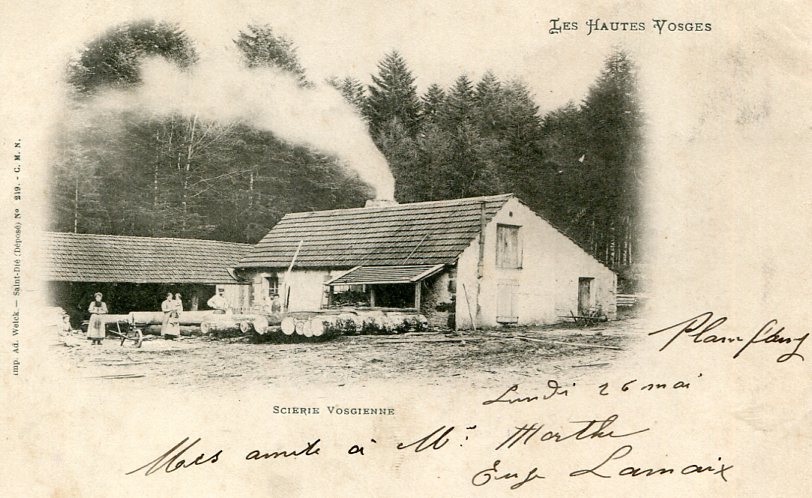 LES HAUTES VOSGES
Imp. Ad. Weick. — Saint-Dié (Déposé) No 219. - C. M. N.
SCIERIE VOSGIENNE
Plainfaing
Lundi 26 mai
Mes amités à Mr Marthe
Lamaix